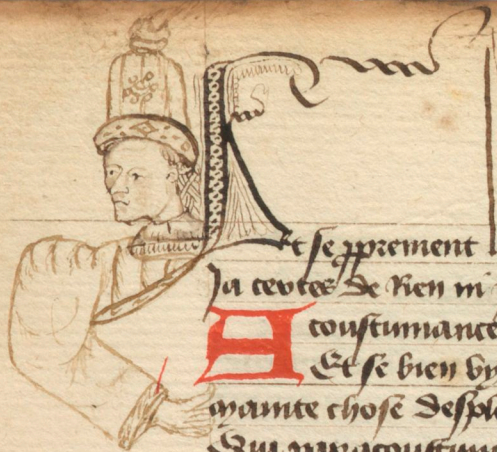 Et se pprement
Ja certes de Rien ni
Acoustumance
Et se bien vy
mainte chose despl
Qui par acoustum